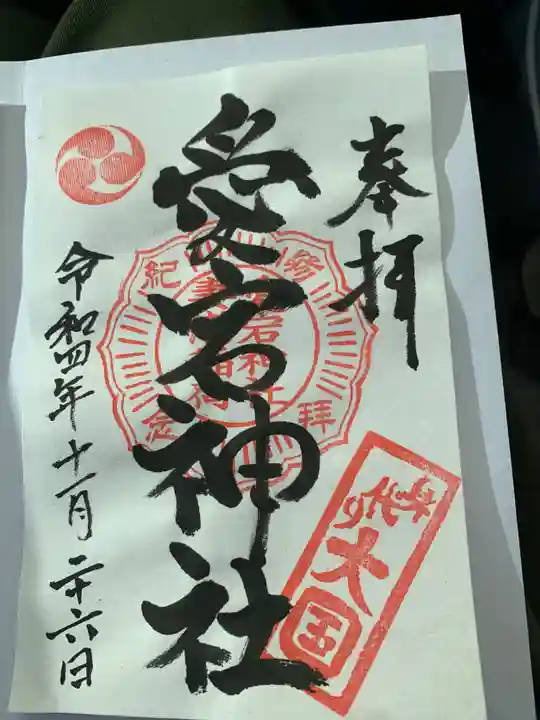 奉拝
愛宕神社
令和四年十一月二十六日
参拝
紀念
大国